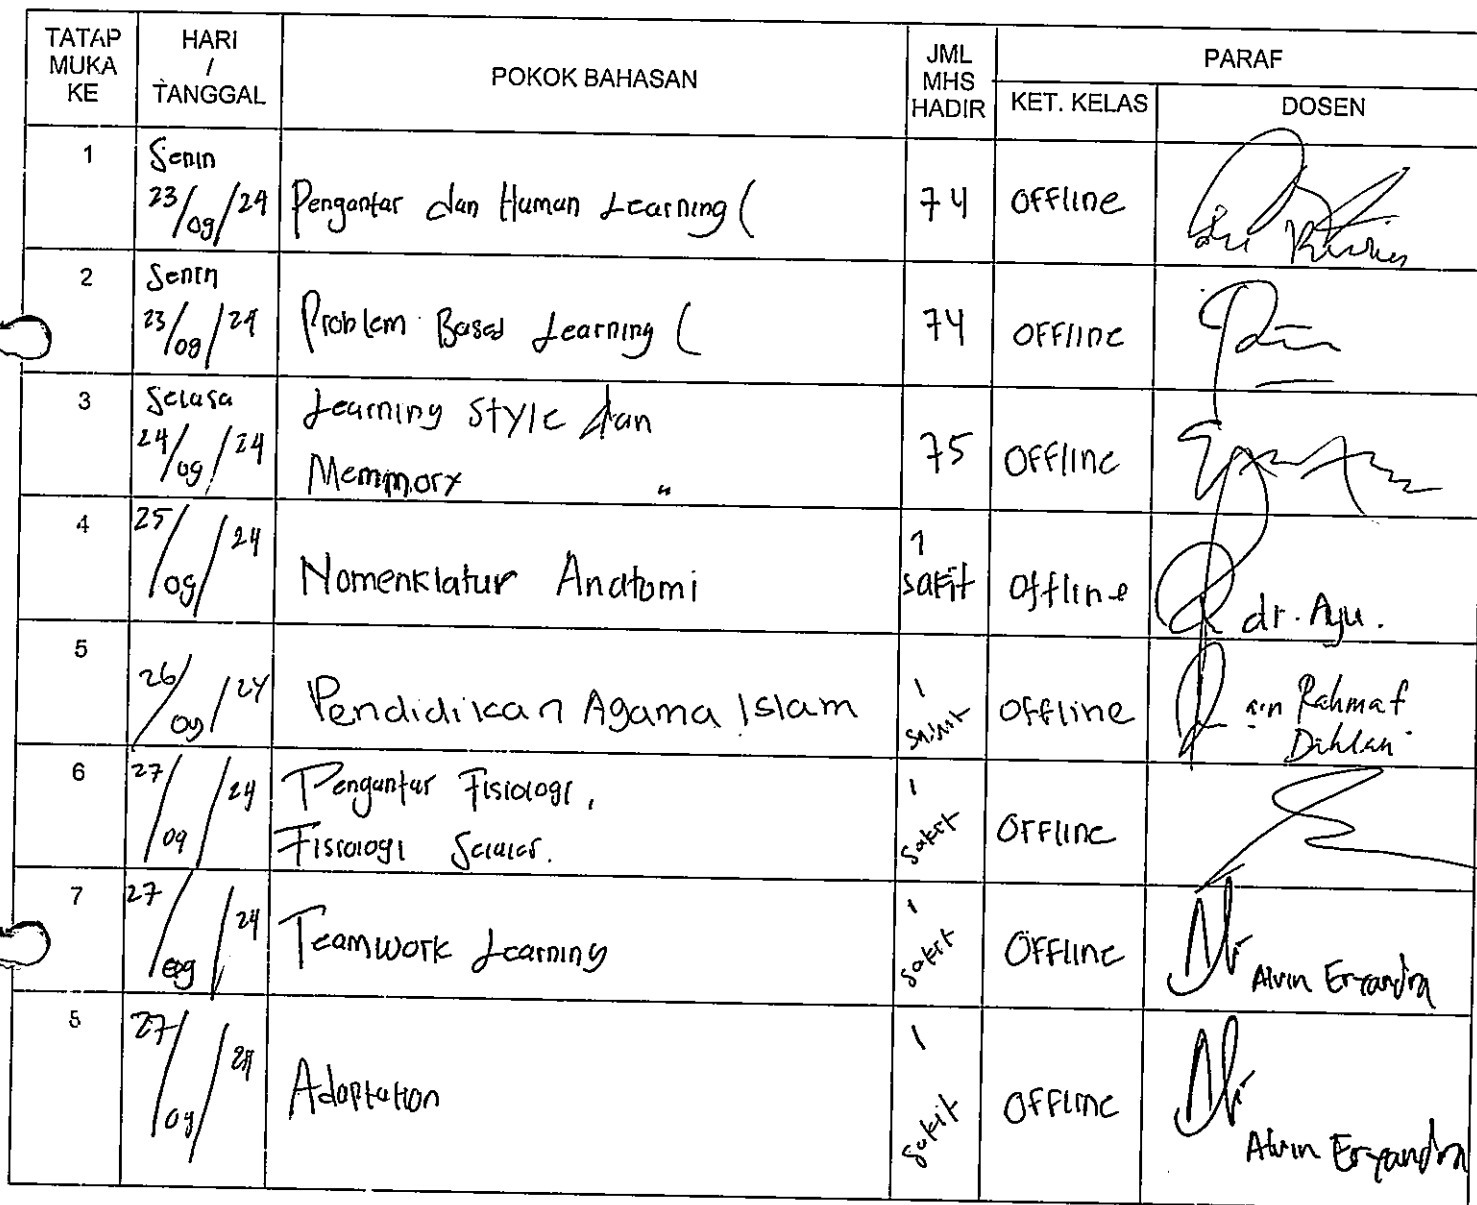 TATAP MUKA KE
HARI / TANGGAL
POKOK BAHASAN
JML MHS HADIR
PARAF
KET. KELAS
DOSEN
1 Senin 23/09/24 Pengantar dan Human Learning ( 74 Offline
2 Senin 23/09/24 Problem Based Learning ( 74 Offline
3 Selasa 24/09/24 Learning Style dan
Memmory " 75 Offline
4 25/09/24 Nomenklatur Anatomi 1 sakit Offline dr. Ayu.
5 26/09/24 Pendidikan Agama Islam 1 sakit Offline Rahmat
Dahlan
6 27/09/24 Pengantar Fisiologi,
Fisiologi Seluler. 1 sakit Offline
7 27/09/24 Teamwork Learning 1 sakit Offline Alvin Eryandra
27/09/24 Adaptation 1 sakit Offline Alvin Eryandra